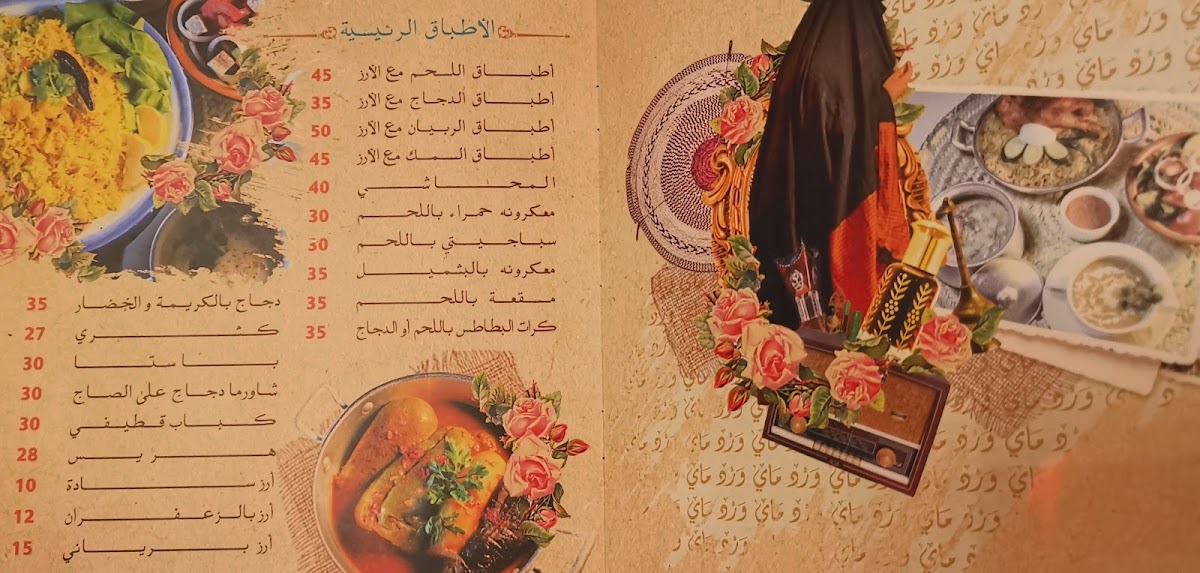 الأطباق الرئيسية
أطباق اللحم مع الأرز 45
أطباق الدجاج مع الأرز 35
أطباق الربيان مع الأرز 50
أطباق السمك مع الأرز 45
المحاشي 40
معكرونه حمراء باللحم 30
سباجيتي باللحم 30
معكرونه بالبشميل 35
مقعة باللحم 35
كرات البطاطس باللحم أو الدجاج 35
دجاج بالكريمة و الخضار 35
كشري 27
باستا 30
شاورما دجاج على الصاج 30
كباب قطيفي 30
هريس 28
أرز سادة 10
أرز بالزعفران 12
أرز برياني 15
وَرْد مَايْ وَرْد مَايْ
وَرْد مَايْ وَرْد مَايْ وَرْد مَايْ
وَرْد مَايْ وَرْد مَايْ وَرْد مَايْ